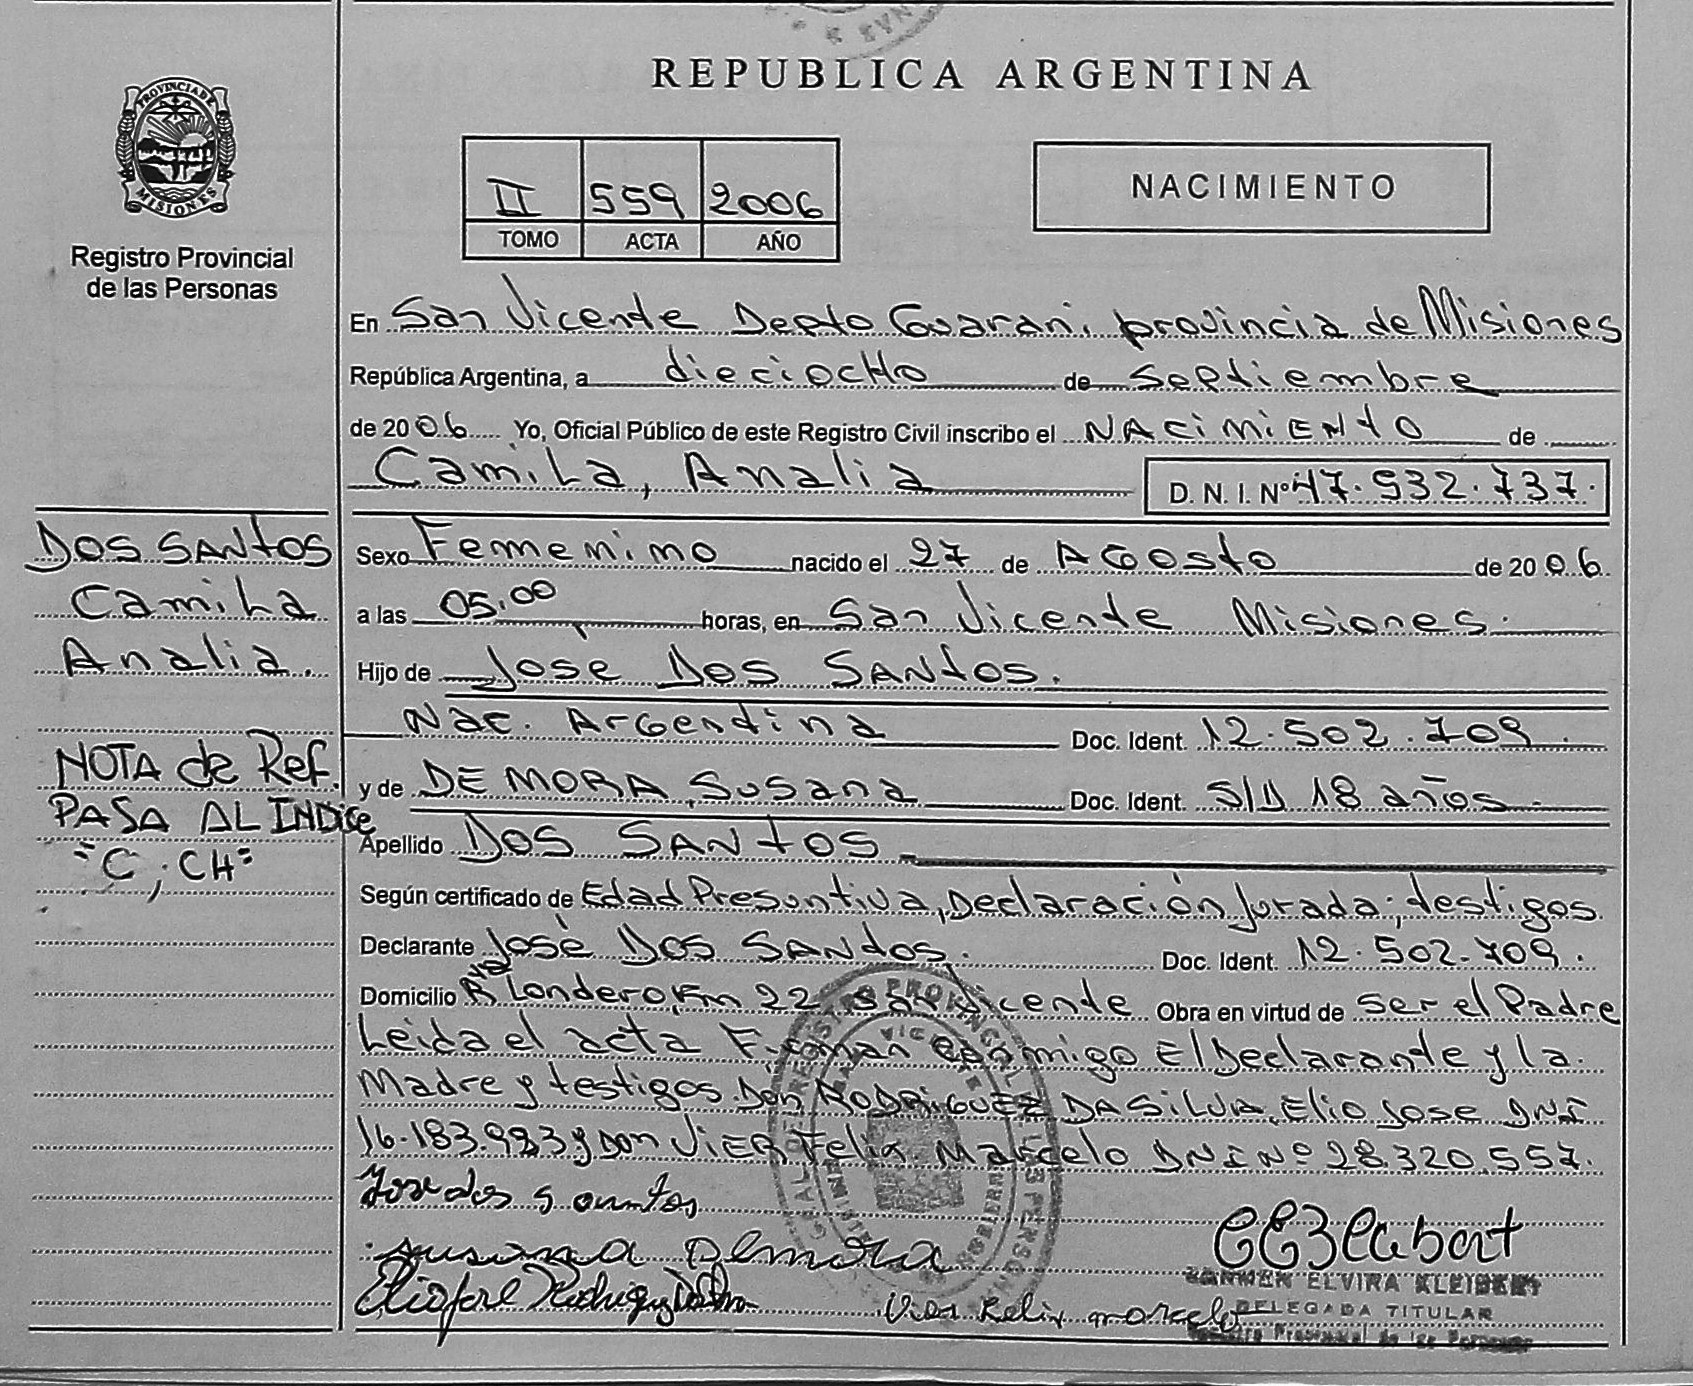 REPUBLICA ARGENTINA
PROVINCIA DE
MISIONES
Registro Provincial
de las Personas
II 559 2006
TOMO ACTA AÑO
NACIMIENTO
En San Vicente Depto Guarani provincia de Misiones
República Argentina, a dieciocho de Septiembre
de 2006 Yo, Oficial Público de este Registro Civil inscribo el NACIMIENTO de
Camila, Analia D. N. I. Nº 47.932.737.
DOS SANTOS
Camila
Analia.
Sexo Femenino nacido el 27 de AGosto de 2006.
a las 05,00 horas, en San Vicente Misiones.
Hijo de José DOS SANTOS.
Nac. Argentina Doc. Ident. 12.502.709.
NOTA de Ref.
PASA AL INDice
"C, CH"
y de DE MORA, Susana Doc. Ident. S/D 18 años.
Apellido DOS SANTOS
Según certificado de Edad Presuntiva, Declaración Jurada; testigos
Declarante José DOS SANTOS. Doc. Ident. 12.502.709.
Domicilio Avda Londero, Km 22 San Vicente Obra en virtud de ser el Padre
Leida el acta Firman conmigo El Declarante y la
Madre y testigos. Don RODRIGUEZ DA SILVA, Elio Jose DNI
16.183.983 y Don VIER Felix Marcelo DNI Nº 28.320.557.
Jose dos santos
susana Demora
Elio Jose Rodriguez Da Silva
Vier Felix marcelo
CARMEN ELVIRA KLEIBERT
DELEGADA TITULAR
Registro Provincial de las Personas